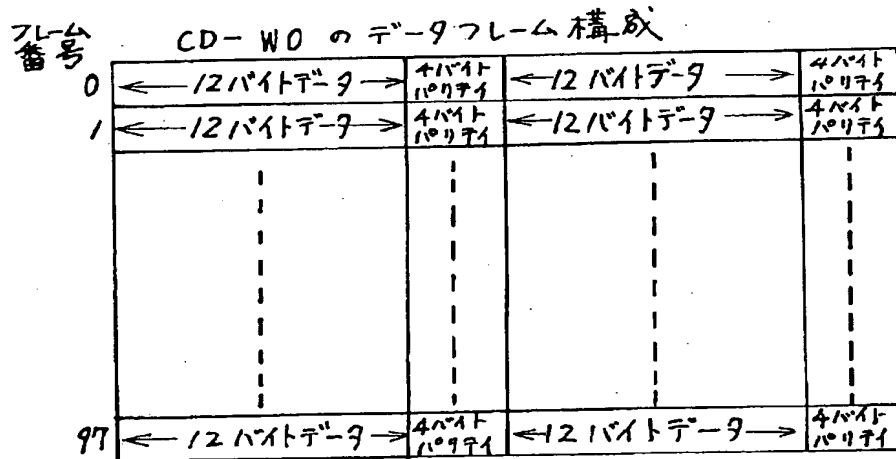 CD-WO のデータフレーム構成
フレーム
番号
0 12バイトデータ 4バイト パリティ 12バイトデータ 4バイト パリティ
1 12バイトデータ 4バイト パリティ 12バイトデータ 4バイト パリティ
97 12バイトデータ 4バイト パリティ 12バイトデータ 4バイト パリティ